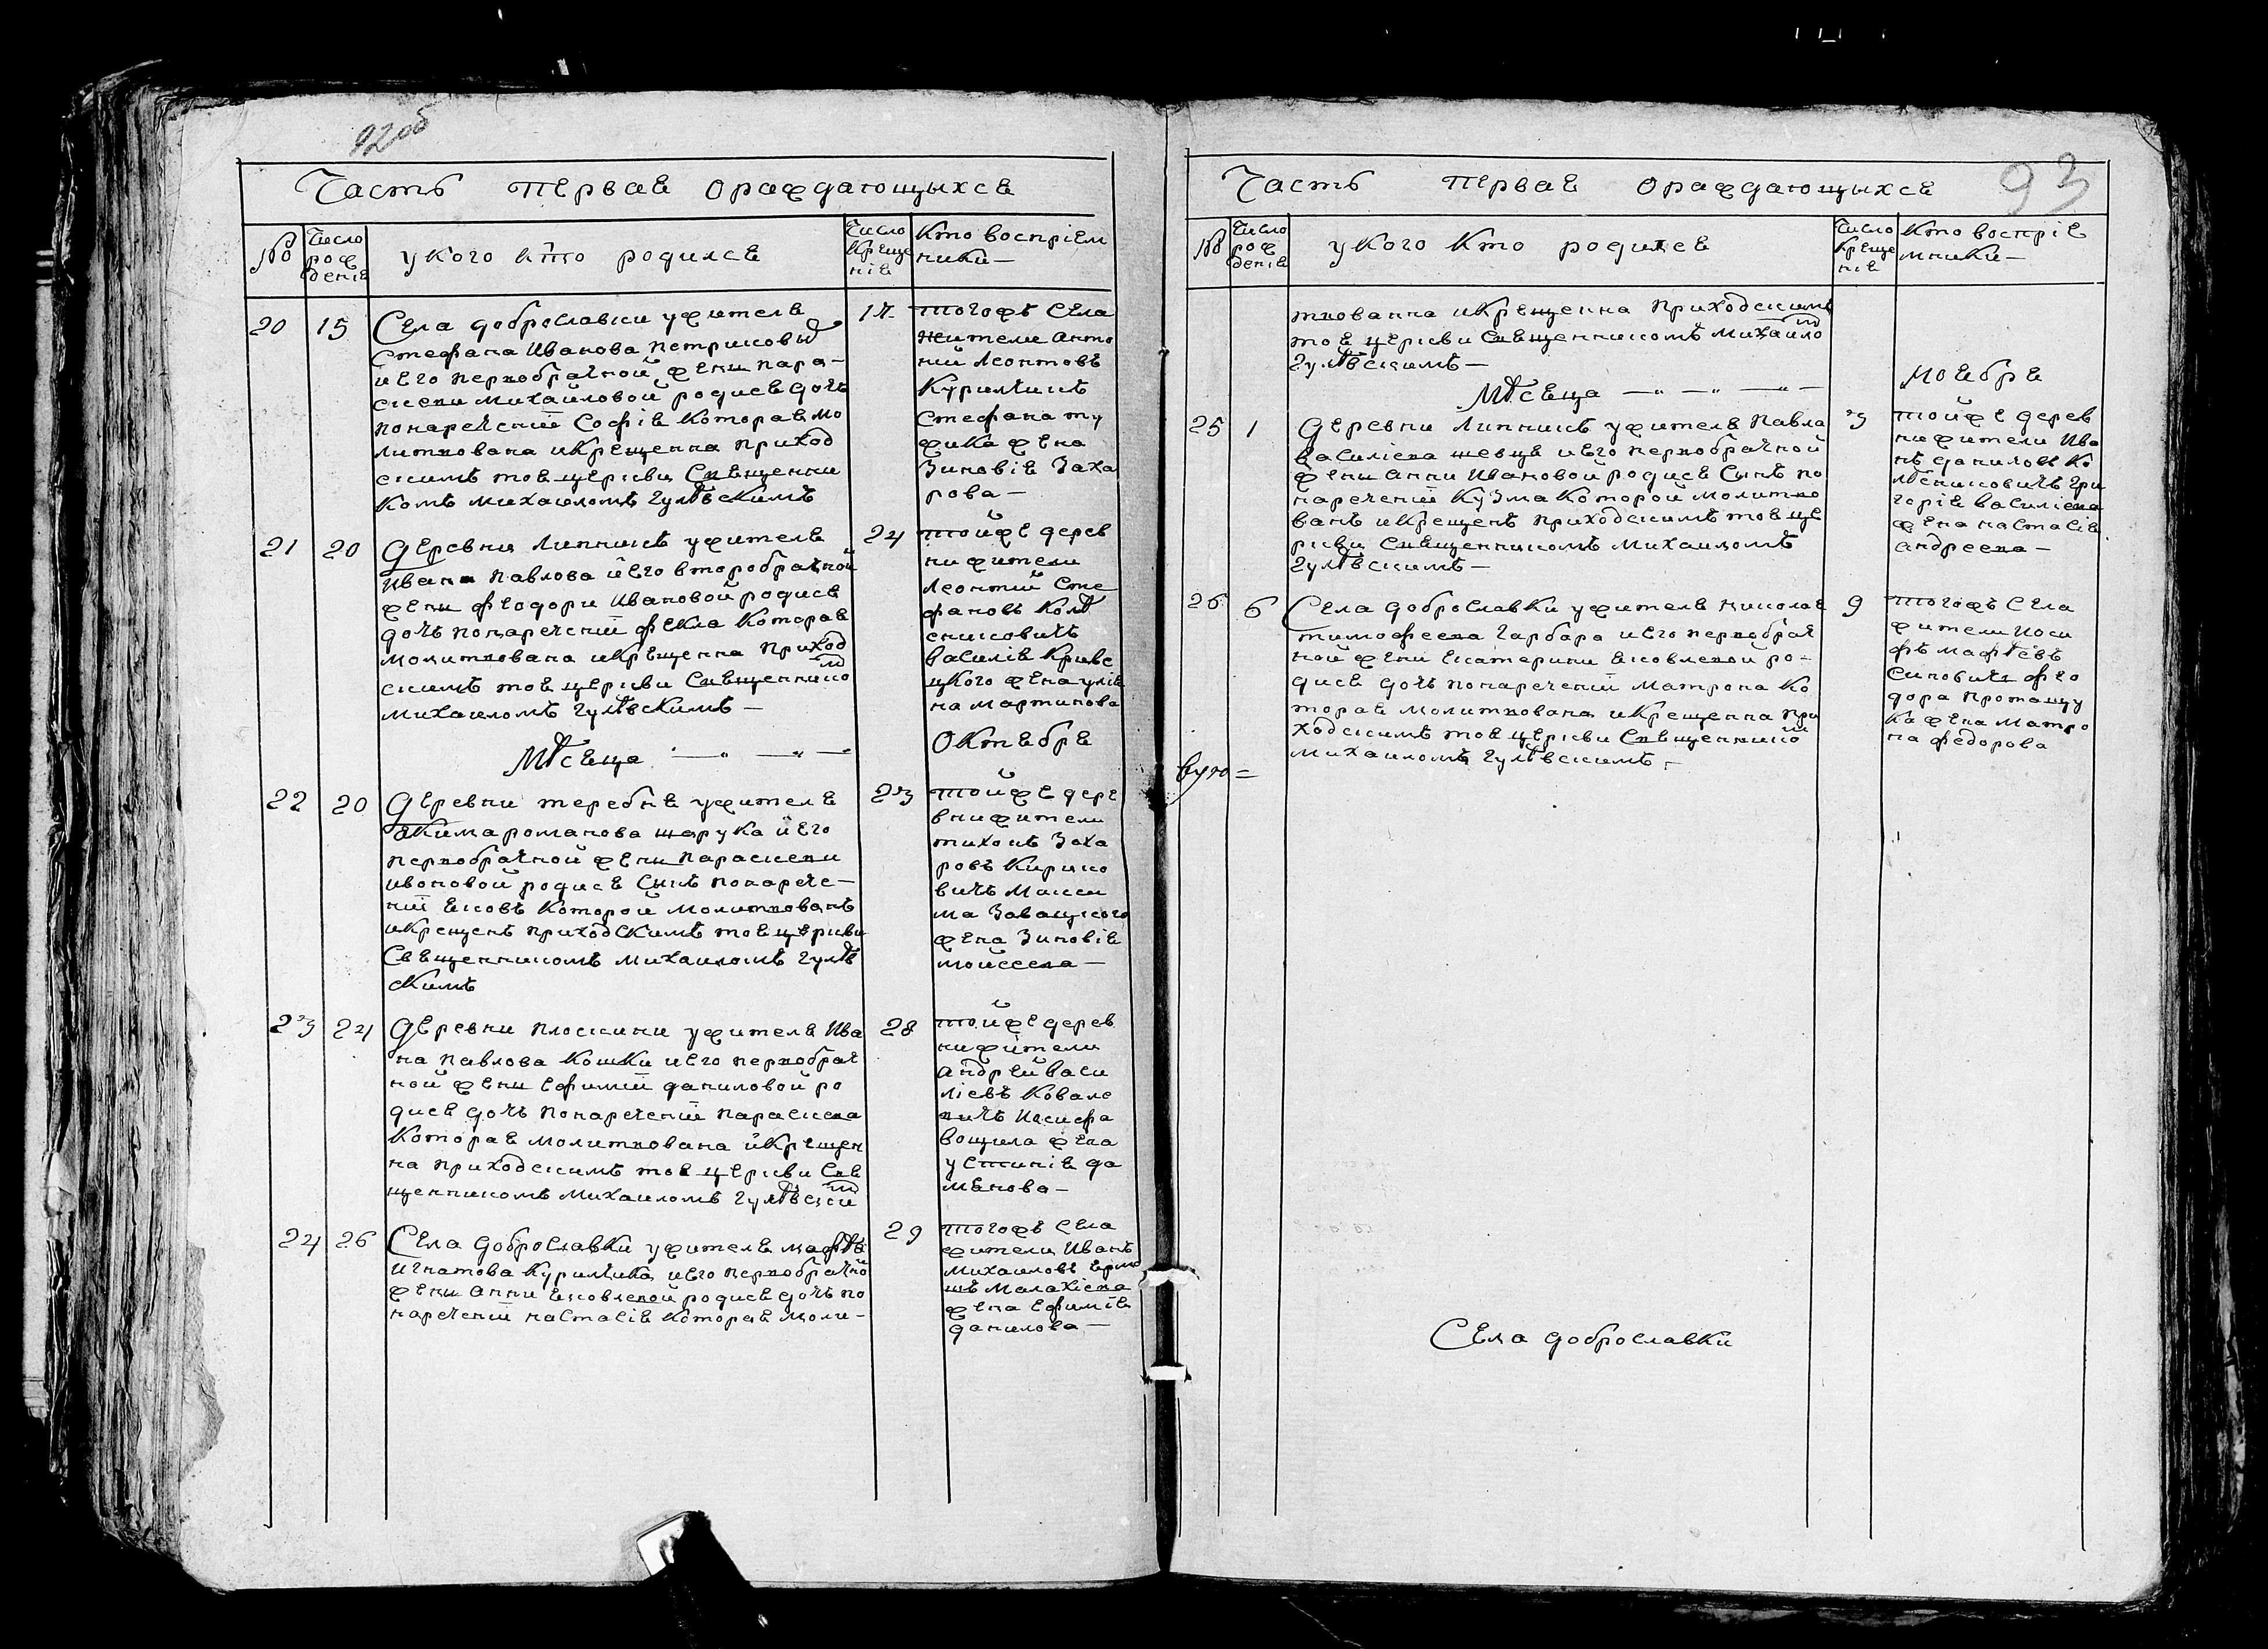 92об
Часть первае ораждающыхсе
№
Число рождениє
укого кто родилсе
Число крещениє
Кто воспріемники—
20
15
Села доброславки ужителе
Стефана Иванова петрисовы
и его первобрачной жени пара-
скеви Михайловой родисе дочъ
понареченій Софіе Которае мо
литвована икрещенна приход
скимъ тое церкви Священни
комъ михаиломъ гулѣвскимъ
17
тогожъ Села
жителе анто
ній леонтовъ
Куриличъ
Стефана ту
жика жена
Зиновіе Заха
рова—
21
20
Деревни липникъ ужителе
Ивана павлова и его второбрачной
жени феодори Ивановой родисе
дочъ понареченій фекла Которае
молитвована икрещенна приход
скимъ тое церкви Священнико
михаиломъ гулѣвскимъ—
24
тойже дерев
ни жители
леонтій Сте
фановъ Колѣ
сниковичъ
василіе Кривс
цкого жена улiе
на мартинова
Мѣсеца — „ — „ —
Октебре
22
20
Деревни теребне ужителе
екима романова шарука и его
первобрачной жени параскеви
ивановой родисе Сынъ понарече-
ній Ековъ Которой молитвованъ
икрещенъ приходскимъ тое церкви
Свещенникомъ михаиломъ гулѣв
скимъ
23
тойже дере
вни жители
тихонъ Заха
ровъ Кирико
вичъ Макси
ма Завацкого
жена Зиновіе
моисеева—
23
24
Деревни плоскини ужителе Ива
на павлова Кошки и его первобрач
ной жени ефимій даниловой ро
дисе дочъ понареченій параскева
Которае молитвована икрещен
на приходскимъ тое церкви Све
щенникомъ михаиломъ гулѣвски
28
тойже дерев
ни жители
андрей васи
ліевъ Ковале
вичъ Иосифа
вощила жена
устиніе да
мѣнова—
24
26
Села доброславки ужителе мафѣе
игнатова Куриляка и его первобрачно
жени анни Ековлевой родисе дочъ по
нареченій настасіе Которае моли-
29
тогожъ Села
жители Иванъ
михаиловъ ермо
шъ малахіева
жена ефиміе
данилова—
93
Часть первае ораждающыхсе
№
Число рождениє
укого кто родилсе
Число крещениє
Кто воспріемники—
твованна икрещенна приходскимъ
тое церкви Священникомъ михаило
гулѣвскимъ—
Мѣсеца — „ — „ — „ —
ноебре
25
1
Деревни липникъ ужителе павла
василіева шевце и его первобрачной
жени анни Ивановой родисе Сынъ по
нареченій Кузма Которой молитво
ванъ икрещенъ приходскимъ тое це
ркви Священникомъ михаиломъ
гулѣвскимъ—
3
тойже дерев
ни жители Ива
нъ даниловъ Ко
лѣсниковичъ гри
горіе василіева
жена настасіе
андреева—
26
6
Села доброславки ужителе николае
тимофеева гарбара и его первобрач
ной жени Екатерини Ековлевой ро-
дисе дочъ понареченій матрона Ко
торае молитвована икрещенна при
ходскимъ тое церкви Священнико
михаиломъ гулѣвскимъ—
9
тогожъ Села
жители Иоси
фъ мафѣевъ
Синовичъ фео
дора протащу
ка жена матро
на федорова
Села доброславки